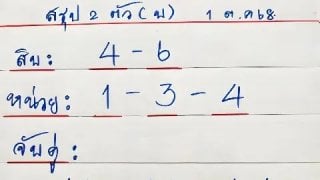 สรุป 2 ตัว (บ) 1 ต.ค 68
สิบ: 4 - 6
หน่วย: 1 - 3 - 4
จับคู่: